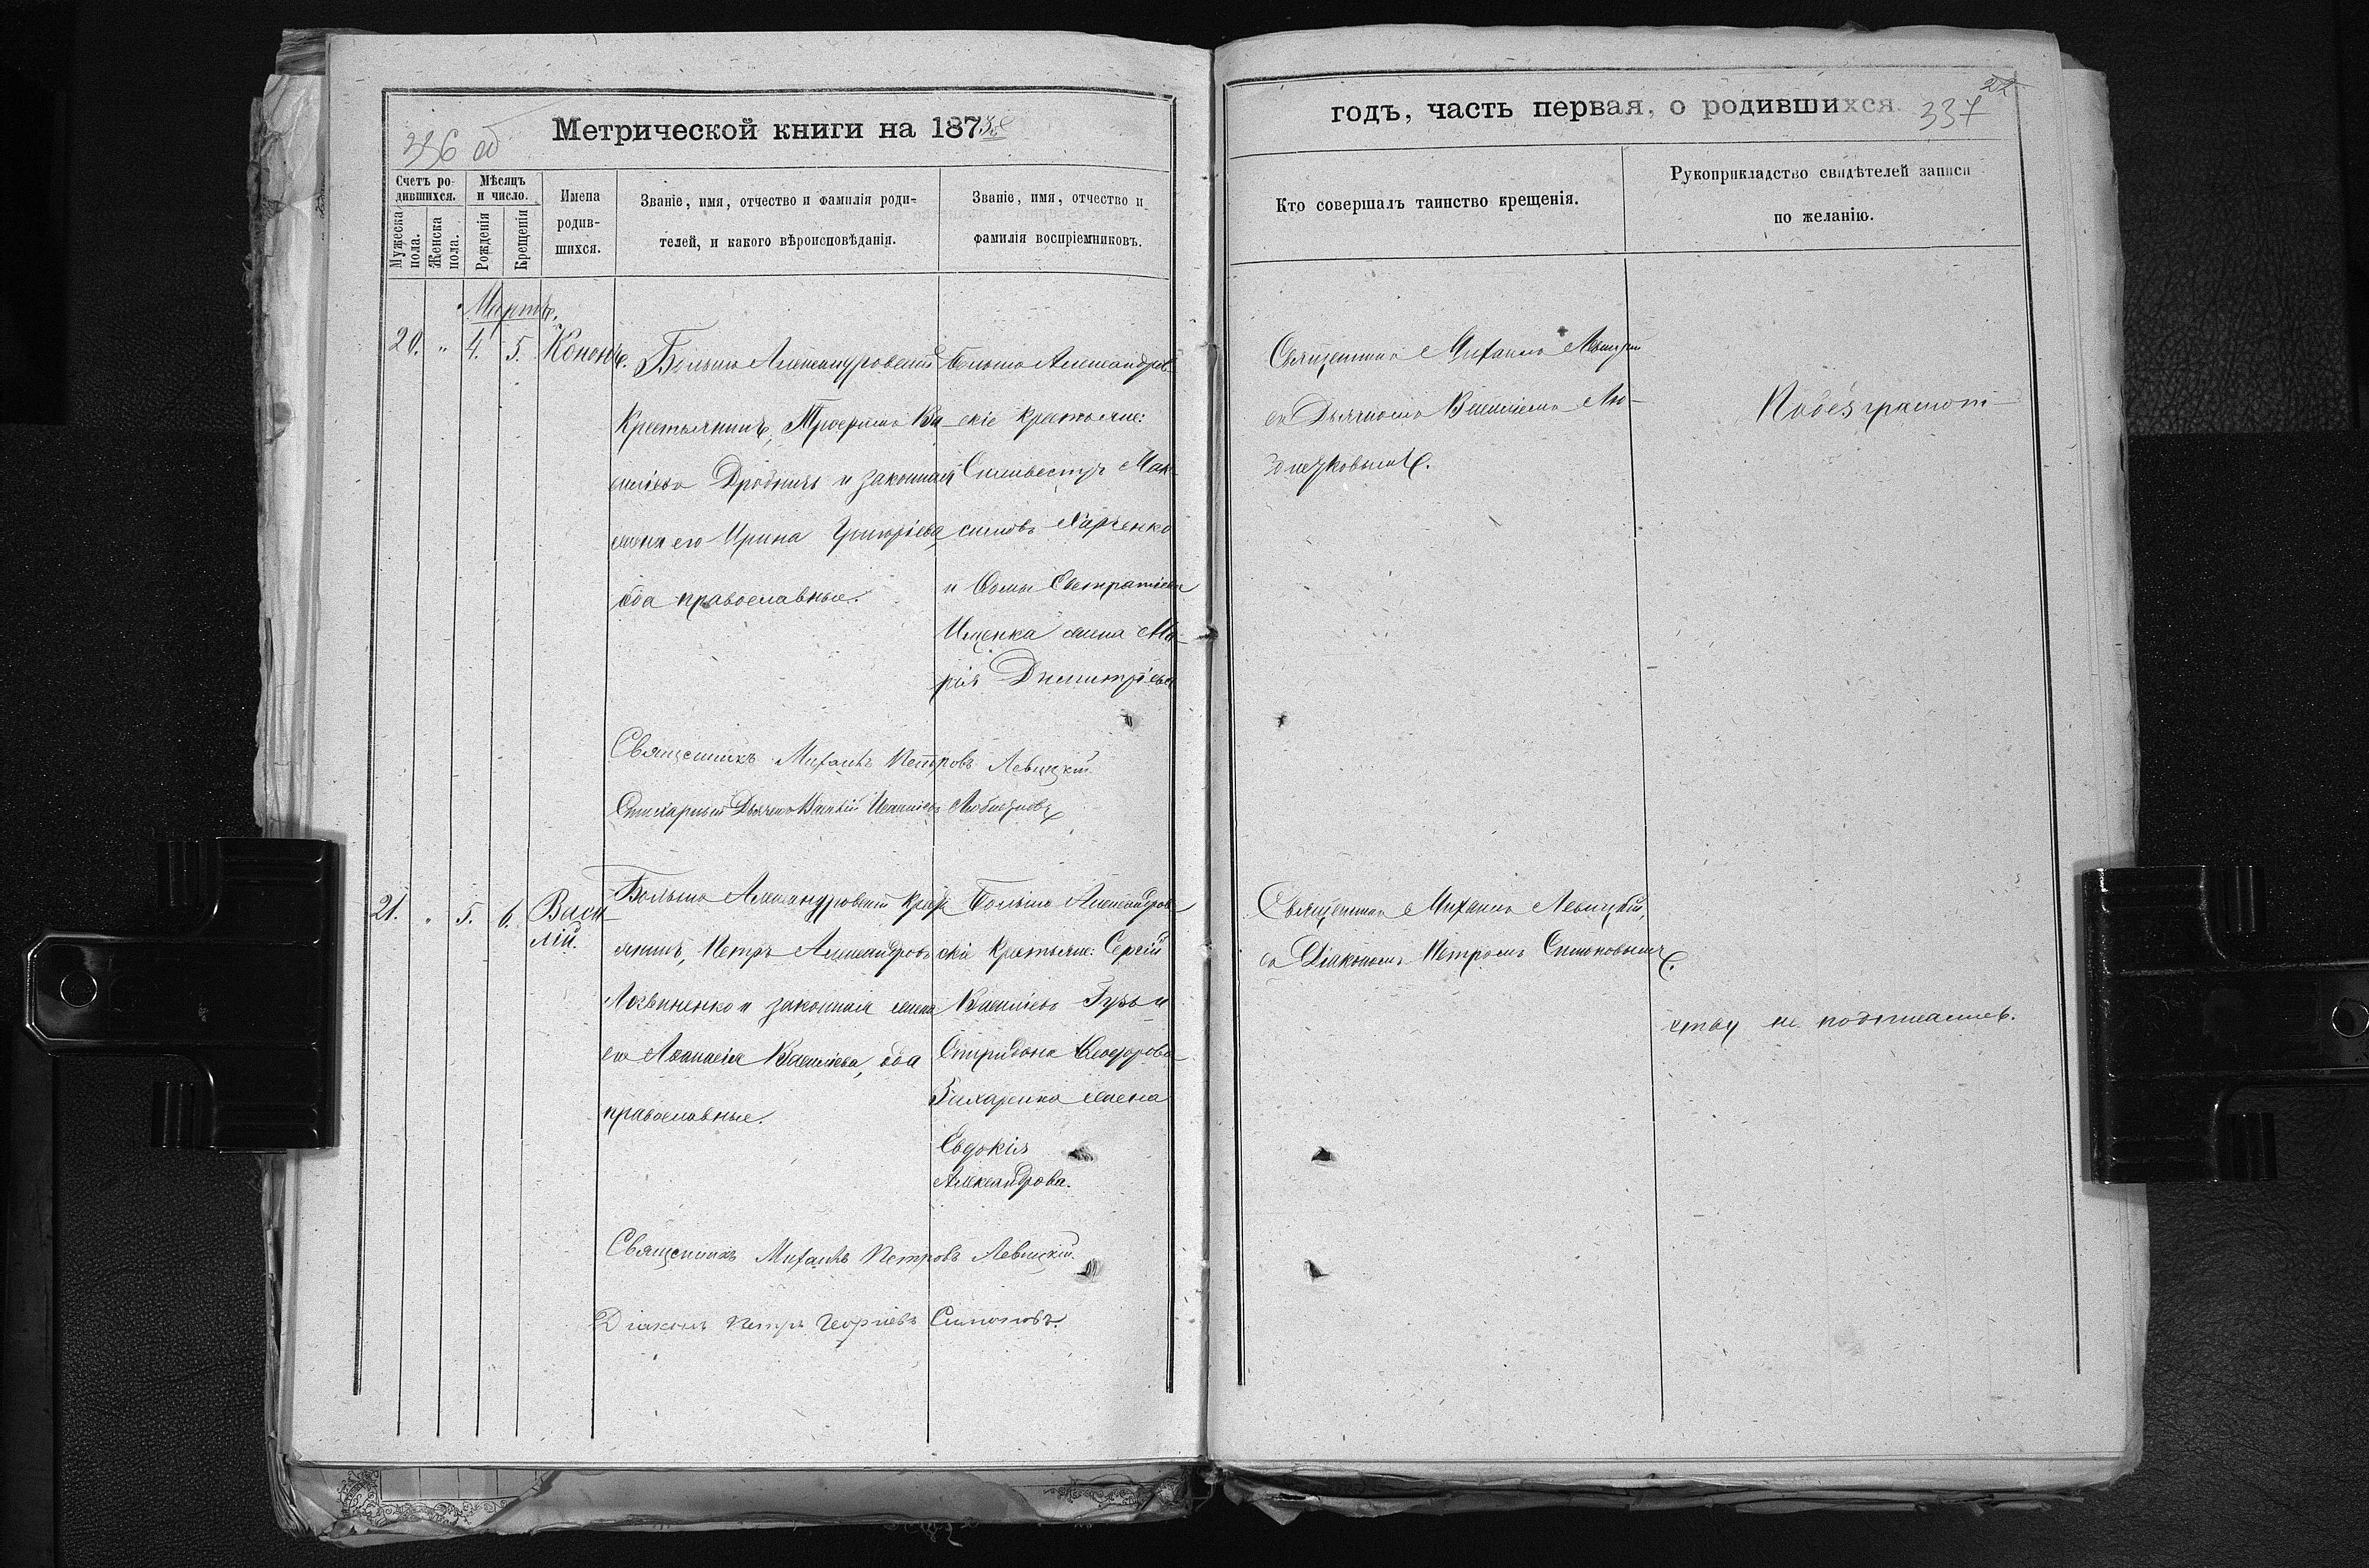 336 об
Метрической книги на 1873й
Счетъ родившихся.
Мужеска пола.
Женска пола.
Мѣсяцъ и число.
Рожденія
Крещенія
Имена родившихся.
Званіе, имя, отчество и фамилія роди-
телей, и какого вѣроисповѣданія.
Званіе, имя, отчество и
фамилія воспріемниковъ.
Мартъ.
20. " 4. 5. Кононъ.
Больше Александровскій
Крестьянинъ, Трофимъ Ва
силіевъ и законная
жена его Ирина Григоріева,
оба православные.
Больше Александров
скіе крестьяне:
Сильвестръ Мак
симовъ Харченко
и Ѳомы Евстратіева
Ищенка жена Ма-
рія Димитріева
Священникъ Михаилъ Петровъ Левицкій.
Стихарный Дьячекъ Василій
21. " 5. 6. Васи
лій.
Больше Александровскій Крест
янинъ, Петръ Александровъ
Логвиненко и законная жена
его Аѳанасія Василіева, оба
православные.
Больше Александров
скіе Крестьяне: Сергій
Василіевъ Гузь и
Спиридона Ѳеодорова
Захаренка жена
Евдокія
Александрова.
Священникъ Михаилъ Петровъ Левицкій.
Діаконъ Петръ Георгіевъ Симоновъ.
годъ, часть первая, о родившихся.
22
337
Кто совершалъ таинство крещенія.
Рукоприкладство свидѣтелей записи
по желанію.
Священникъ Михаилъ Левицкій
съ Дьячкомъ Василіемъ Лю-
Священникъ Михаилъ Левицкій,
съ Діакономъ Петромъ Симоновымъ.
не подписались.